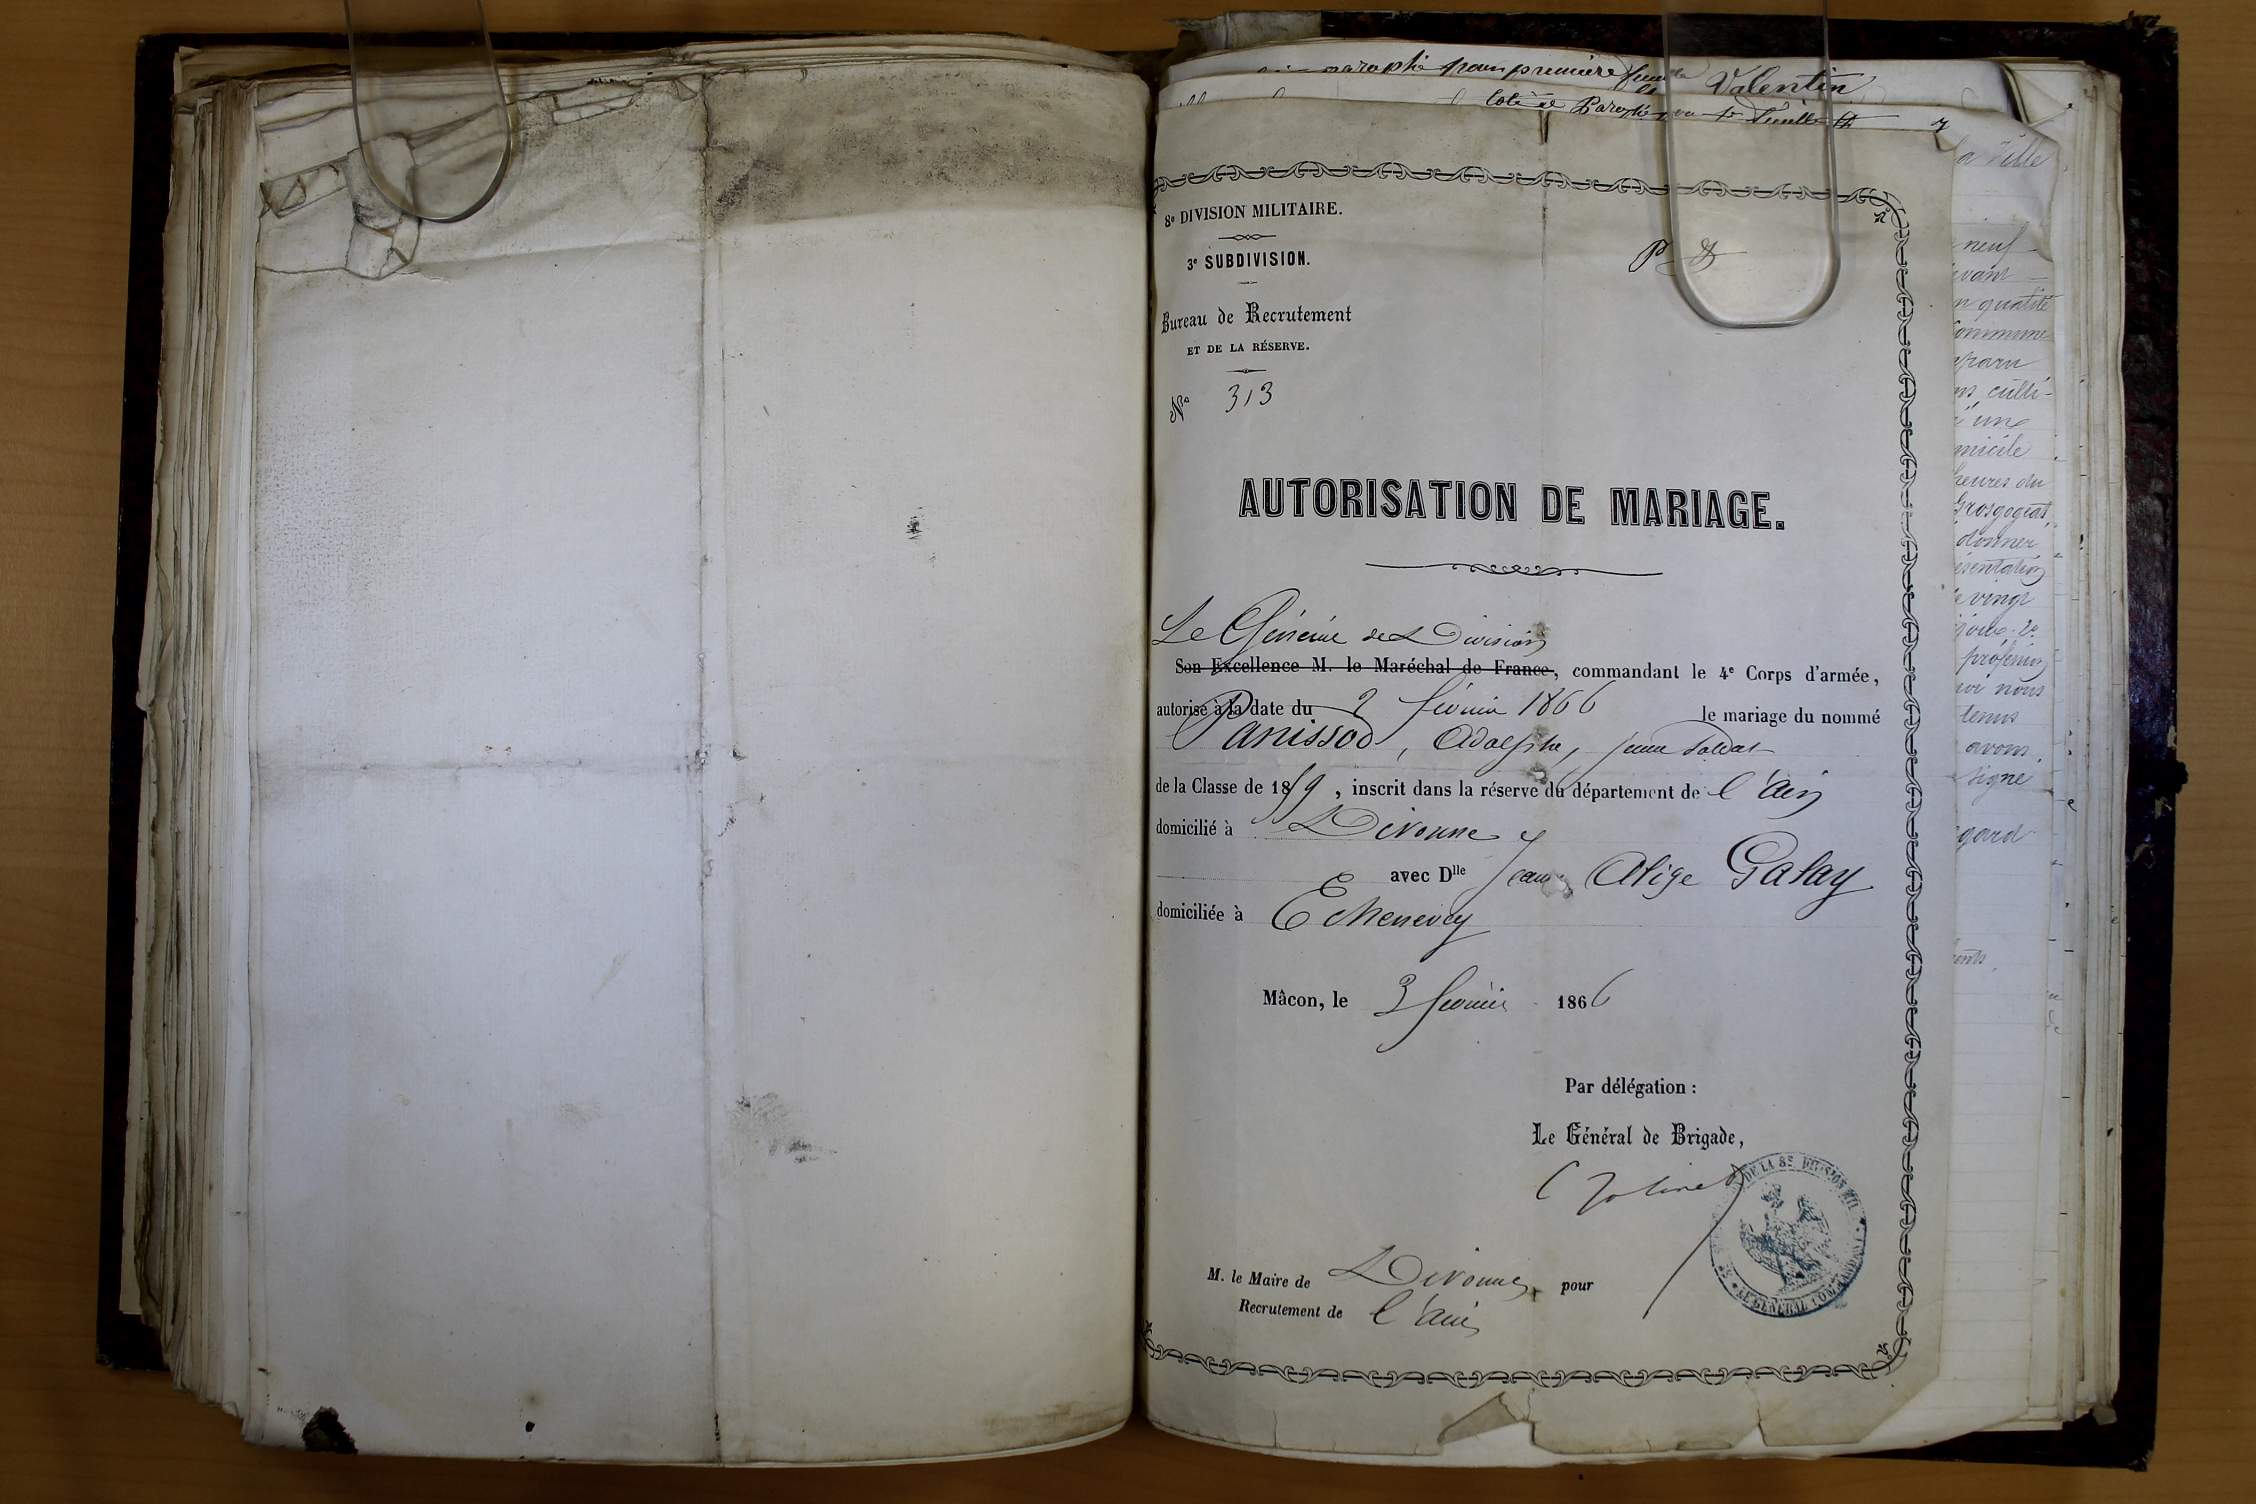 paraphé pour première feuille Valentin
Coté et Paraphé pour 1e feuille
8e DIVISION MILITAIRE.
3e SUBDIVISION.
Bureau de Recrutement
ET DE LA RÉSERVE.
No 313
AUTORISATION DE MARIAGE.
Le Général de Division
Son Excellence M. le Maréchal de France, commandant le 4e Corps d'armée,
autorise à la date du 2 février 1866 le mariage du nommé
Panissod, Adolphe, jeune soldat
de la Classe de 1859, inscrit dans la réserve du département de l'ain
domicilié à Divonne
avec Dlle Jeanne Alige Galay
domiciliée à Echenevey
Mâcon, le 3 février 1866
Par délégation :
Le Général de Brigade,
DE LA 8E DIVISION MIL
LE GÉNÉRAL COMMANDANT
M. le Maire de Divonne pour
Recrutement de l'ain
a Ville
neuf
evant
n qualité
Commune
ns culti-
une
micile
heures du
Grosgogeat,
donner
ésentation
vingt
nous
tenus
avons
signé